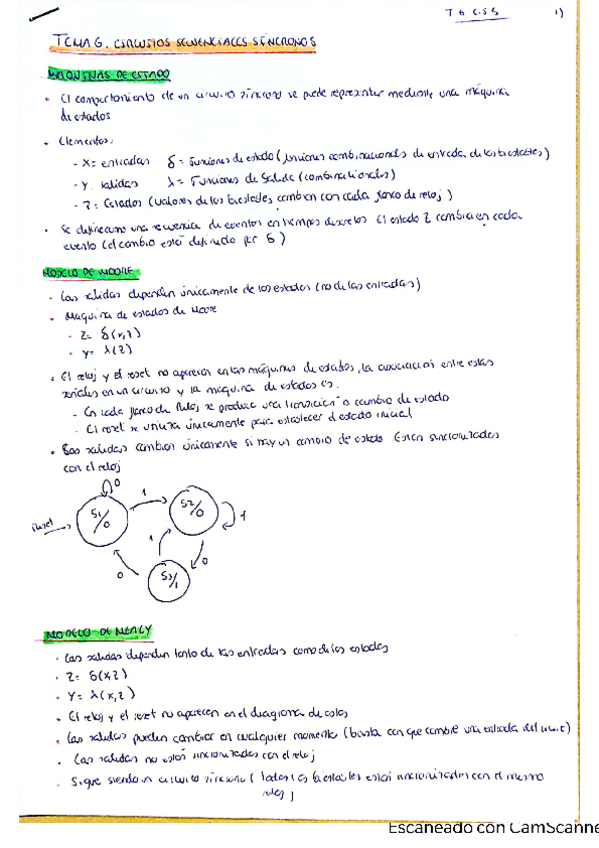 T6 CSS 1)
TEMA 6. CIRCUITOS SECUENCIALES SÍNCRONOS
MAQUINAS DE ESTADO
• El comportamiento de un circuito síncrono se puede representar mediante una máquina
de estados
• Elementos:
- X = entradas δ = Funciones de estado (funciones combinacionales de entrada de los biestables)
- Y salidas λ = Funciones de Salida (combinacionales)
- Z = Estados (valores de los biestables, cambian con cada flanco de reloj)
• Se define como una secuencia de eventos en tiempos discretos El estado Z cambia en cada
evento (el cambio está definido por δ)
MODELO DE MOORE
• Las salidas dependen únicamente de los estados (no de las entradas)
• Maquina de estados de Moore
• Z = δ(x,z)
• y = λ(z)
• El reloj y el reset no aparecen en las máquinas de estados, la asociación entre estas
señales en un circuito y la maquina de estados es.
- En cada flanco de reloj se produce una transición o cambio de estado
- El reset se utiliza únicamente para establecer el estado inicial
• Las salidas cambian únicamente si hay un cambio de estado Están sincronizadas
con el reloj
0
1
reset
S1/0
S2/0
1
1
0
0
S3/1
MODELO DE MEALY
• Las salidas dependen tanto de las entradas como de los estados
• Z = δ(x,z)
• Y = λ(x,z)
• El reloj y el reset no aparecen en el diagrama de
• Las salidas pueden cambiar en cualquier momento (basta con que cambie una entrada del
• Las salidas no están sincronizadas con el reloj
• Sigue siendo un circuito síncrono (todos los biestables están sincronizados con el mismo
reloj)
Escaneado con CamScanne